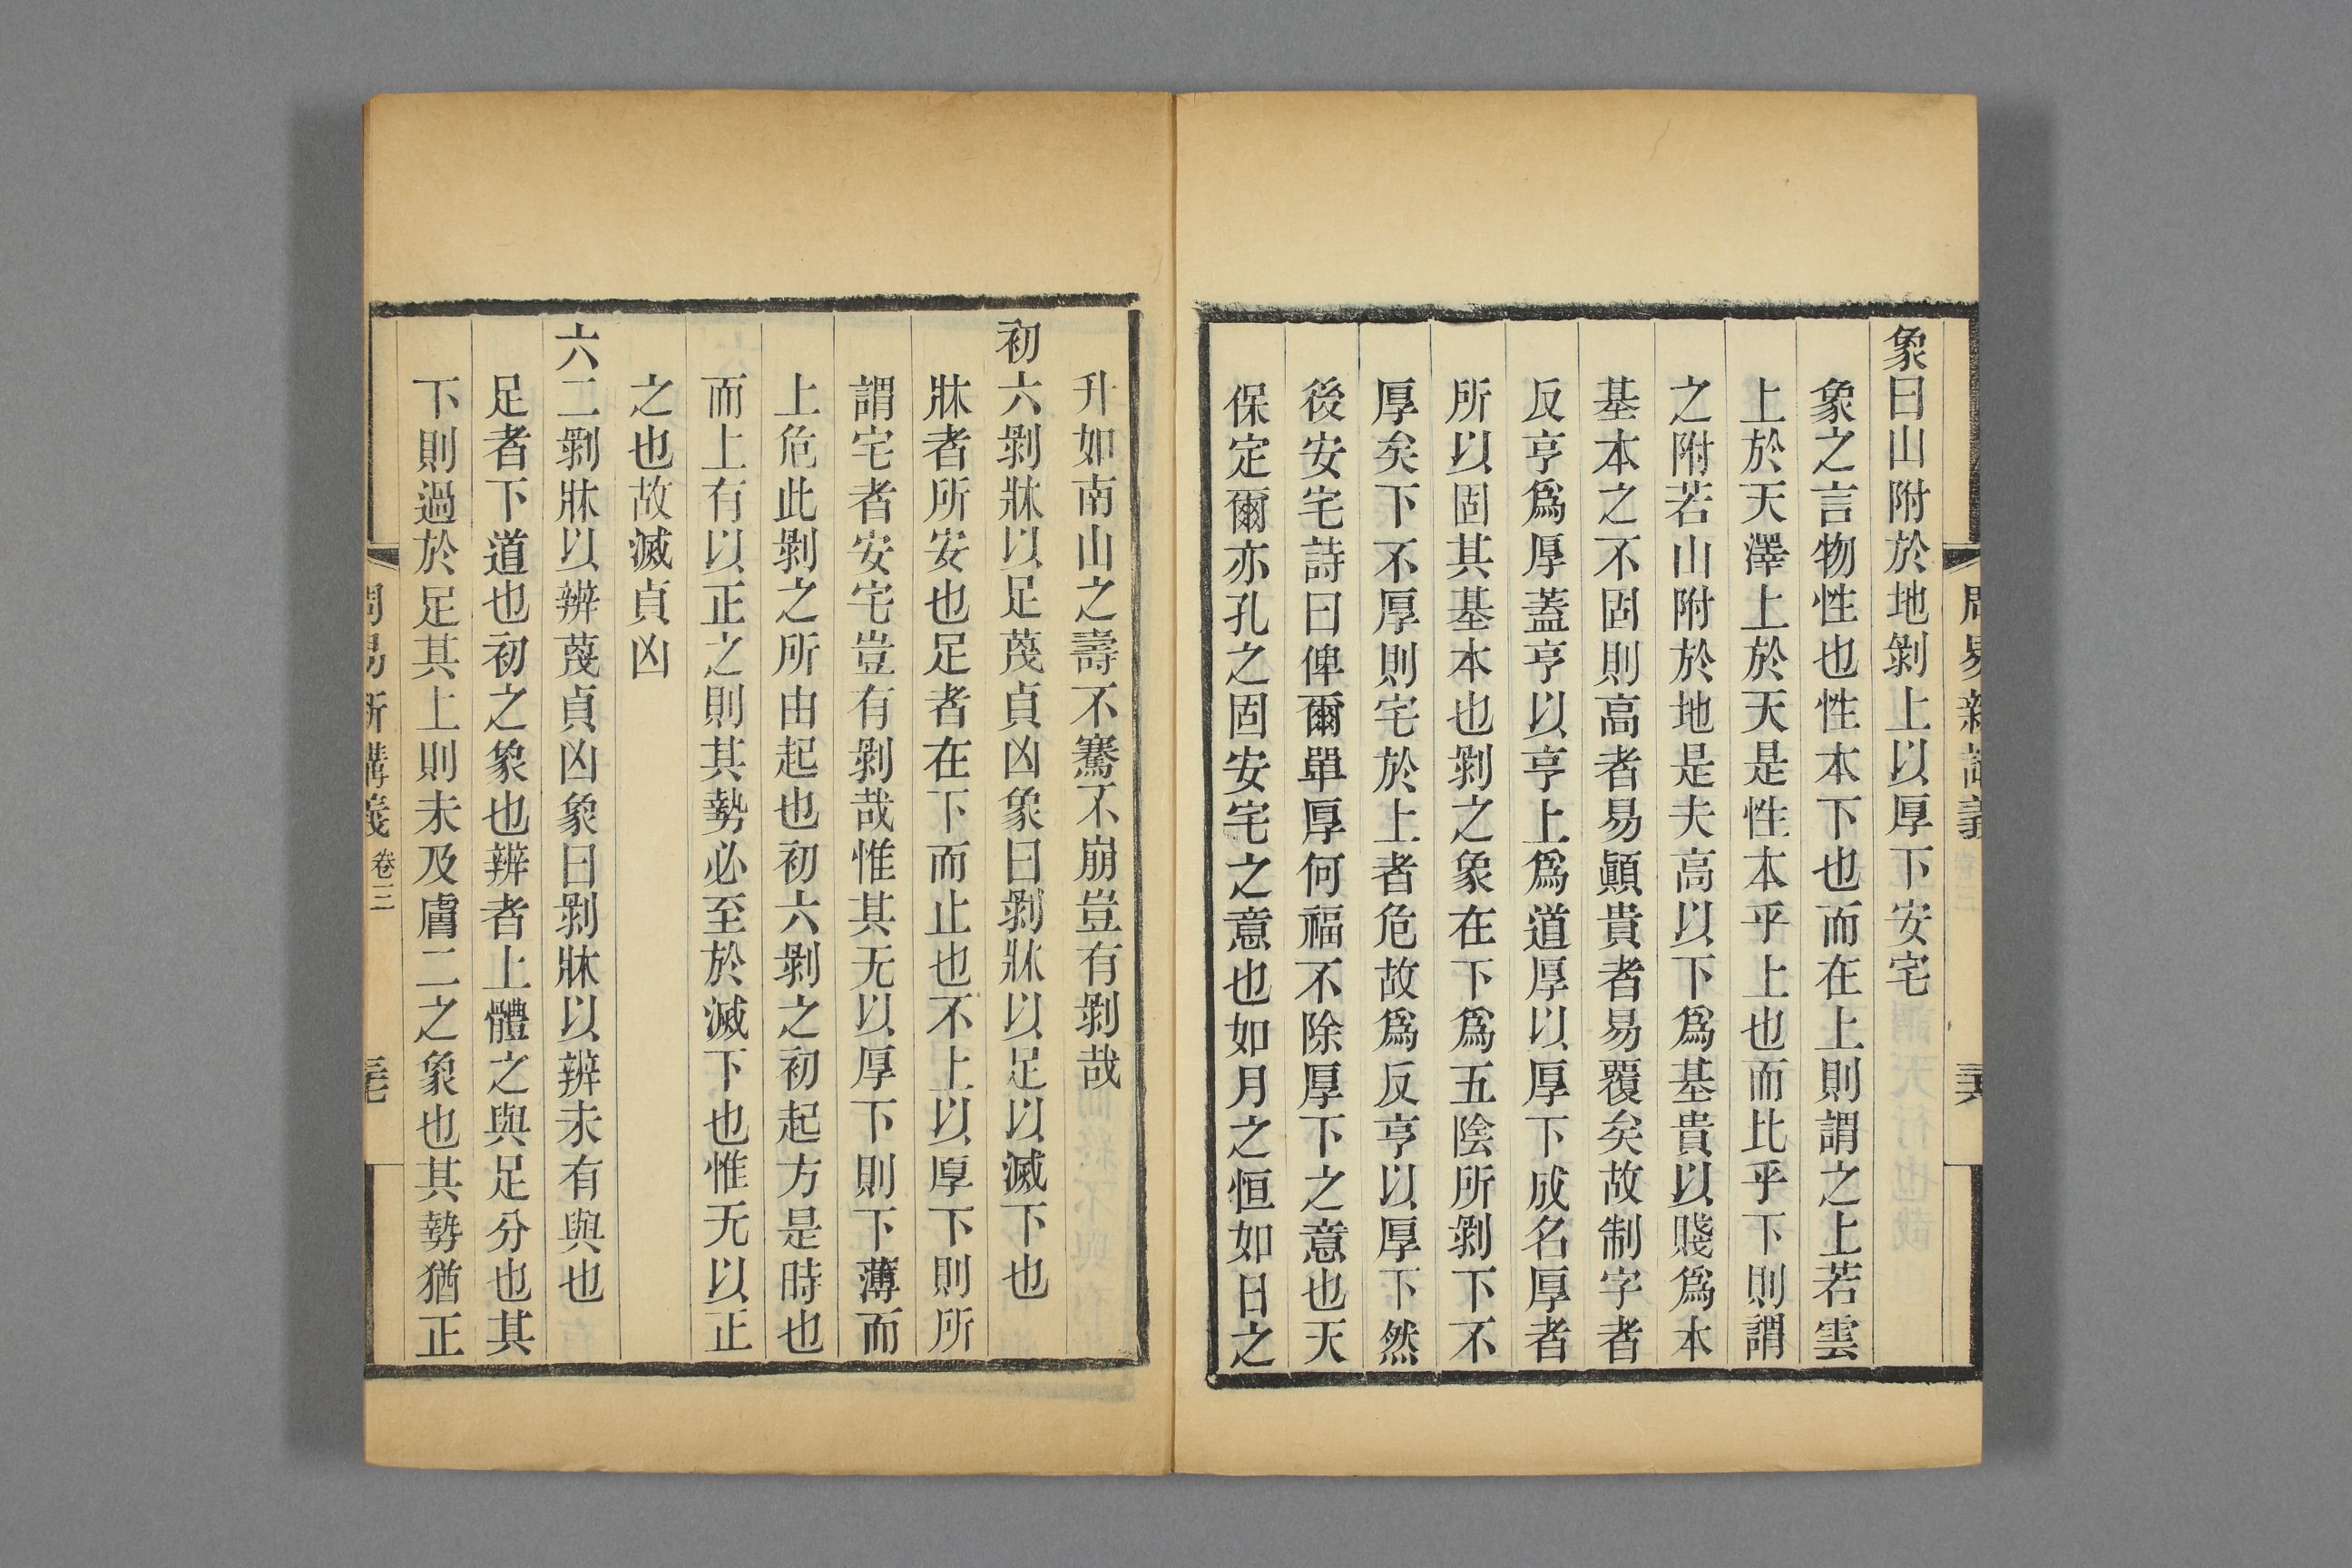 象曰山附於地剝上以厚下安宅
象之言物性也性本下也而在上則謂之上若雲
上於天澤上於天是性本乎上也而比乎下則謂
之附若山附於地是夫高以下爲基貴以賤爲本
基本之不固則高者易顚貴者易覆矣故制字者
反亨爲厚蓋亨以亨上爲道厚以厚下成名厚者
所以固其基本也剝之象在下爲五陰所剝下不
厚矣下不厚則宅於上者危故爲反亨以厚下然
後安宅詩曰俾爾單厚何福不除厚下之意也天
保定爾亦孔之固安宅之意也如月之恒如日之
升如南山之壽不騫不崩豈有剝哉
初六剝牀以足蔑貞凶象曰剝牀以足以滅下也
牀者所安也足者在下而止也不上以厚下則所
謂宅者安宅豈有剝哉惟其无以厚下則下薄而
上危此剝之所由起也初六剝之初起方是時也
而上有以正之則其勢必至於滅下也惟无以正
之也故滅貞凶
六二剝牀以辨蔑貞凶象曰剝牀以辨未有與也
足者下道也初之象也辨者上體之與足分也其
下則過於足其上則未及膚二之象也其勢猶正
周易新講義 卷三